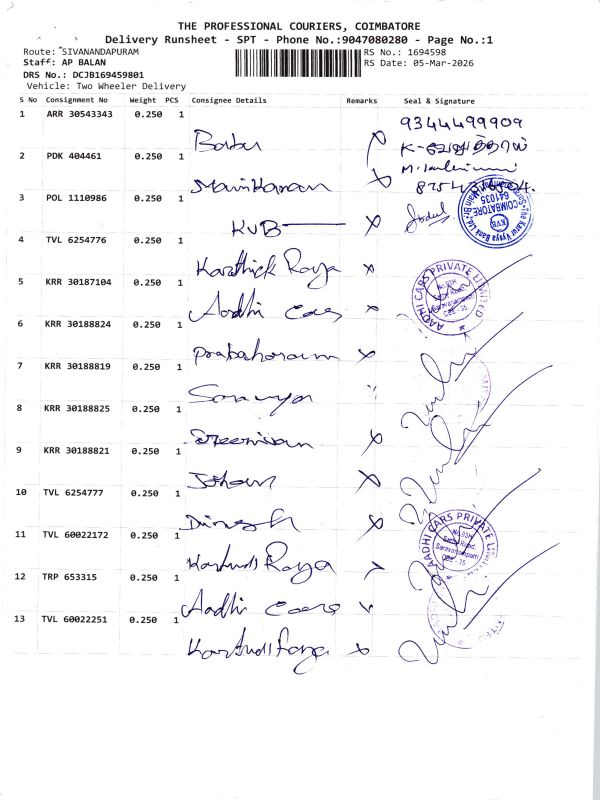 THE PROFESSIONAL COURIERS, COIMBATORE
Delivery Runsheet - SPT - Phone No.:9047080280 - Page No.:1
Route: SIVANANDAPURAM RS No.: 1694598
Staff: AP BALAN RS Date: 05-Mar-2026
DRS No.: DCJB169459801
Vehicle: Two Wheeler Delivery
S No Consignment No Weight PCS Consignee Details Remarks Seal & Signature
1 ARR 30543343 0.250 1 Babu 9344499909
2 PDK 404461 0.250 1 Manikanan
3 POL 1110986 0.250 1 KVB
The Karur Vysya Bank Ltd.
COIMBATORE
641035
KVB
4 TVL 6254776 0.250 1 Karthick Raya
5 KRR 30187104 0.250 1 Aadhi Cars
AADHI CARS PRIVATE LIMITED
6 KRR 30188824 0.250 1 Prabaharam
7 KRR 30188819 0.250 1
8 KRR 30188825 0.250 1
9 KRR 30188821 0.250 1
10 TVL 6254777 0.250 1 Dinesh
11 TVL 60022172 0.250 1 Raya
AADHI CARS PRIVATE LIMITED
12 TRP 653315 0.250 1 Aadhi Cars
13 TVL 60022251 0.250 1